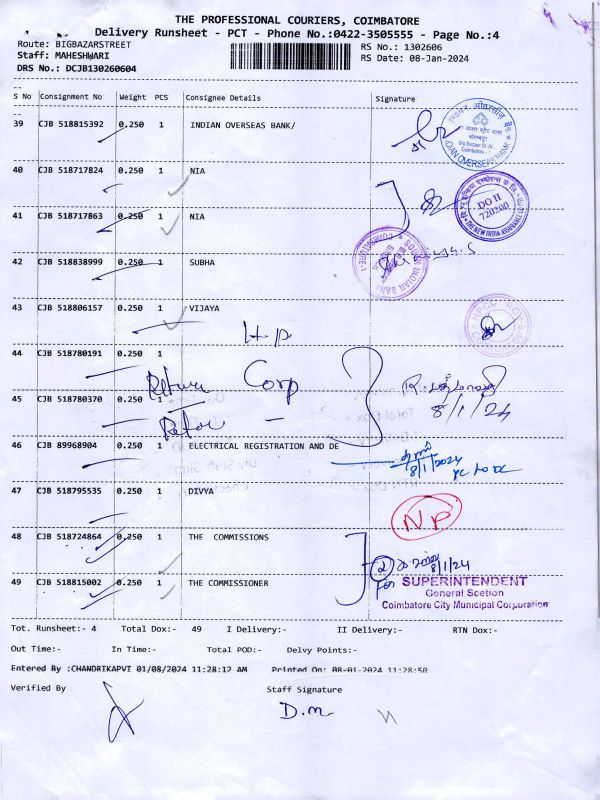 THE PROFESSIONAL COURIERS, COIMBATORE
Delivery Runsheet - PCT - Phone No.:0422-3505555 - Page No.:4
Route: BIGBAZARSTREET
RS No.: 1302606
Staff: MAHESHWARI
RS Date: 08-Jan-2024
DRS No.: DCJB130260604
S No Consignment No Weight PCS Consignee Details Signature
39 CJB 518815392 0.250 1 INDIAN OVERSEAS BANK/
40 CJB 518717824 0.250 1 NIA
DO II
720200
THE NEW INDIA ASSURANCE
41 CJB 518717863 0.250 1 NIA
42 CJB 518838999 0.250 1 SUBHA
43 CJB 518806157 0.250 1 VIJAYA
44 CJB 518780191 0.250 1
Return Corp
45 CJB 518780370 0.250 1
8/1/24
46 CJB 89968904 0.250 1 ELECTRICAL REGISTRATION AND DE
8/1/2024
47 CJB 518795535 0.250 1 DIVYA
NP
48 CJB 518724864 0.250 1 THE COMMISSIONS
8/1/24
49 CJB 518815002 0.250 1 THE COMMISSIONER
For SUPERINTENDENT
General Scetion
Coimbatore City Municipal Corporation
Tot. Runsheet:- 4 Total Dox:- 49 I Delivery:- II Delivery:- RTN Dox:-
Out Time:- In Time:- Total POD:- Delvy Points:-
Entered By :CHANDRIKAPVT 01/08/2024 11:28:12 AM Printed On: 08-01-2024 11:28:50
Verified By Staff Signature
D.m